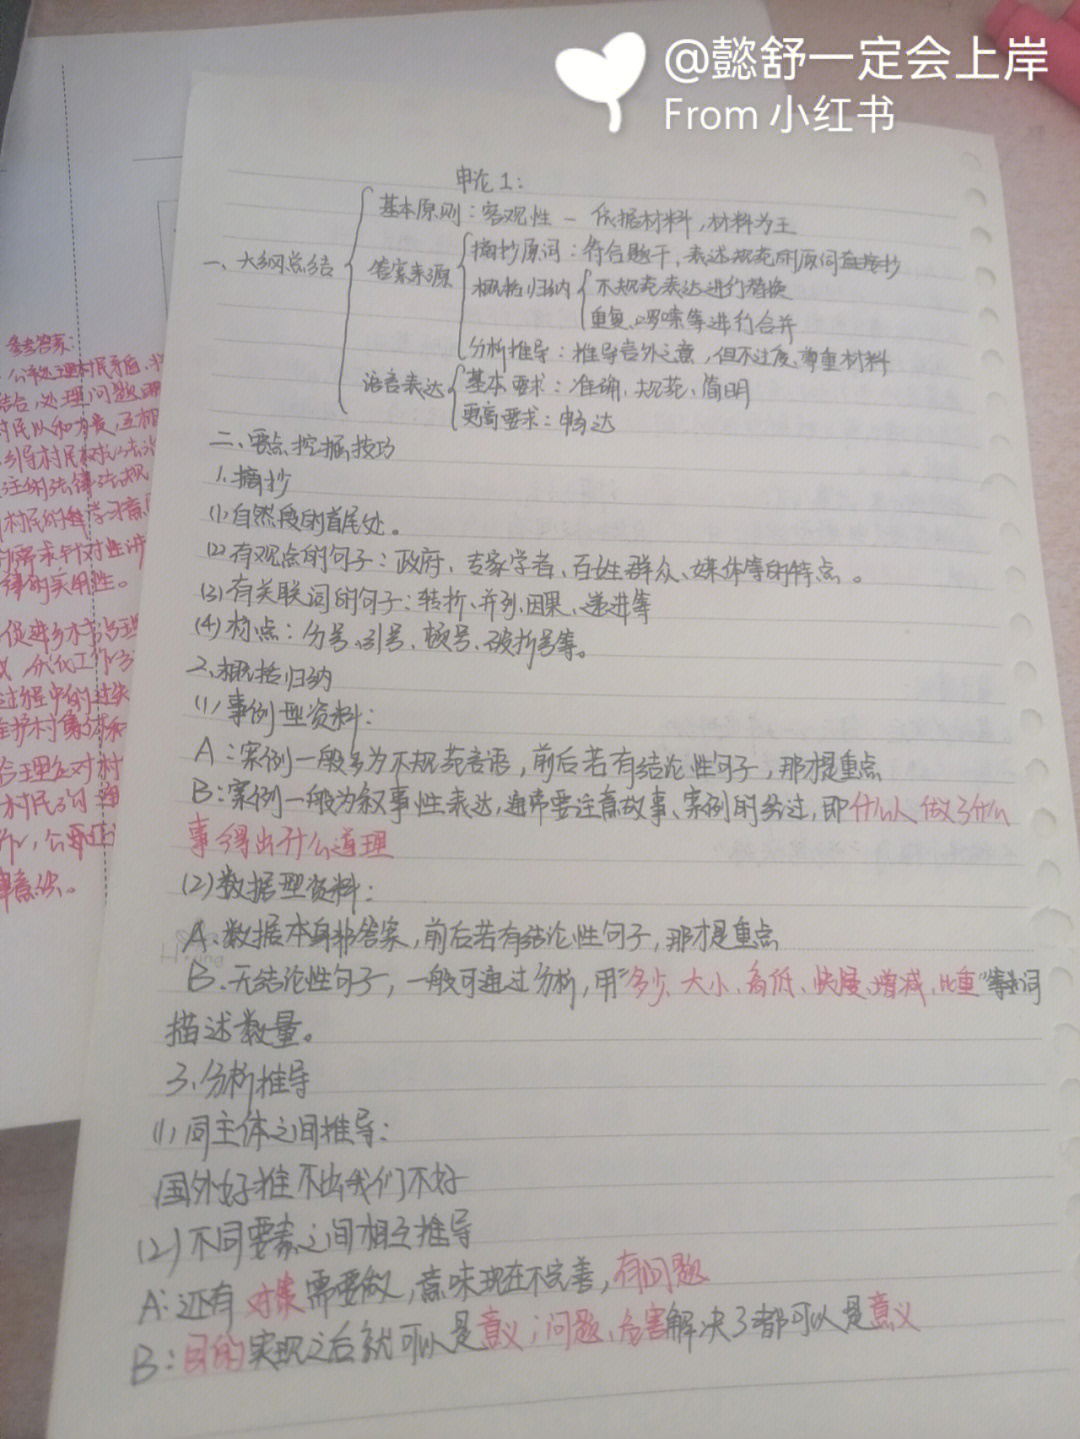 @懿舒一定会上岸
From 小红书
申论1:
基本原则:客观性 — 依据材料,材料为王
一、大纲总结
答案来源
摘抄原词:符合题干,表述规范的原词直接抄
概括归纳
不规范表达进行替换
重复、啰嗦等进行合并
分析推导:推导言外之意,但不过度,尊重材料
语言表达
基本要求:准确、规范、简明
更高要求:畅达
二、要点挖掘技巧
1、摘抄
(1)自然段的首尾处。
(2)有观点的句子:政府、专家学者、百姓群众、媒体等的特点。
(3)有关联词的句子:转折、并列、因果、递进等
(4)标点:分号、引号、顿号、破折号等。
2、概括归纳
(1)事例型资料:
A:案例一般多为不规范言语,前后若有结论性句子,那才是重点
B:案例一般为叙事性表达,通常要注意故事、案例的经过,即什么人做了什么
事得出什么道理
(2)数据型资料:
A、数据本身非答案,前后若有结论性句子,那才是重点
B、无结论性句子,一般可通过分析,用“多少、大小、高低、快慢、增减、比重”等词
描述数量。
3、分析推导
(1)同主体之间推导:
国外好推不出我们不好
(2)不同要素之间相互推导
A:还有对策需要做,意味现在不完善,有问题
B:目的实现之后就可以是意义;问题、危害解决了都可以是意义
参考答案:
公平处理村民矛盾,
结合,处理问题
村民以和为贵,互相
引导村民树立法治
注的法律法规
律的实用性。
促进乡村治理
优化工作方
过程中的过失
维护村集体和
合理应对村
律意识。